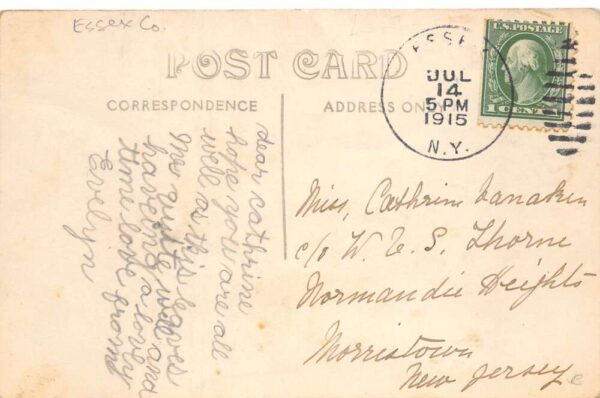 Essex Co.
POST CARD
CORRESPONDENCE
ADDRESS ONLY
ESSEX
JUL
14
5 PM
1915
N.Y.
U.S. POSTAGE
1 CENT 1
dear cathrine
hope you are all
well as this leaves
me quite well and
haveing a lovly
time love from
Evelyn
Miss, Cathrin Vanaken
c/o W. E. S. Thorne
Normandie Heights
Morristown
New Jersey